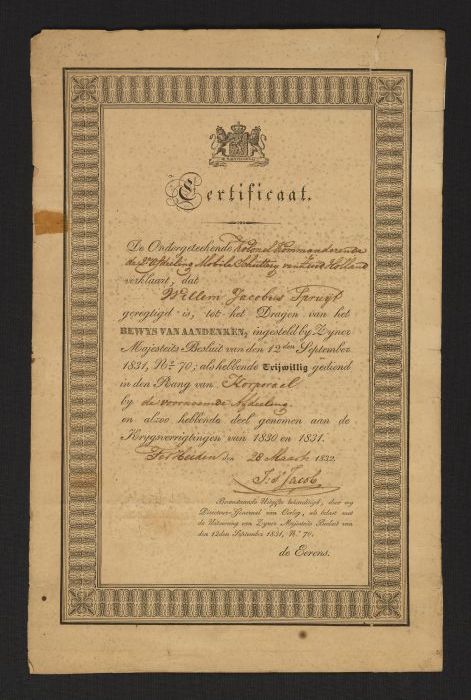 Certificaat.
De Ondergeteekende Kolonel Kommanderende
de 2e Afdeeling Mobile Schuttery van Zuid Holland
verklaart, dat
Willem Jacobus Spruyt
geregtigd is, tot het Dragen van het
BEWYS VAN AANDENKEN, ingesteld by Zyner
Majesteits Besluit van den 12den September
1831, No. 70; als hebbende Vrijwillig gediend
in den Rang van Korporaal
by de voornoemde Afdeeling
en alzoo hebbende deel genomen aan de
Krygsverrigtingen van 1830 en 1831.
den 28 Maart 1832.
Bovenstaande Uitgifte bekrachtigd, door my
Directeur-Generaal van Oorlog, als belast met
de Uitvoering van Zyner Majesteits Besluit van
den 12den September 1831, No. 70.
de Eerens.